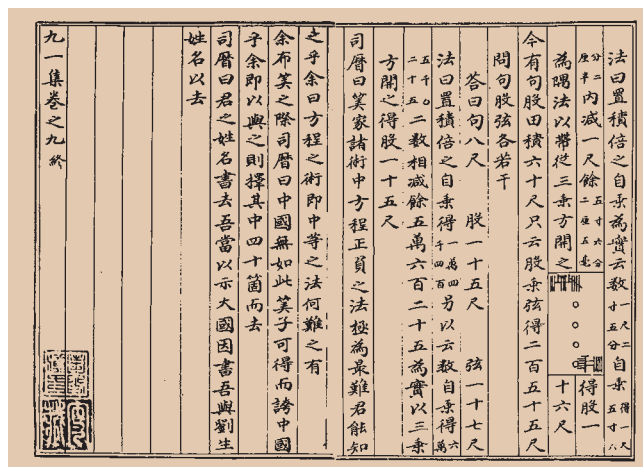 法曰置積倍之自乗為實云数一尺二十五分自乗得一尺五寸六
分二厘半內減一尺餘五寸六分二厘五毫
為隅法以帶從三乗方開之
〇〇〇〇
得股一
十六尺
今有句股田積六十尺只云股乗弦得二百五十五尺
問句股弦各若干
答曰句八尺 股一十五尺 弦一十七尺
法曰置積倍之自乗得一萬四千四百另以云数自乗得六萬
五千〇二十五二数相減餘五萬六百二十五為實以三乗
方開之得股一十五尺
司暦曰筭家諸術中方程正負之法極為最難君能知
之乎余曰方程之術即中等之法何難之有
余布筭之際司暦曰中國無如此筭子可得而誇中國
乎余即以與之則擇其中四十箇而去
司暦曰君之姓名書去吾當以示大國因書吾與劉生
姓名以去
九一集卷之九終